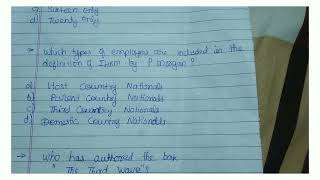 c) Sixteen only
d) Twenty only
→ Which types of employees are included in the
definition of IHRM by P. Morgan?
a) Host Country Nationals
b) Parent Country Nationals
c) Third Country Nationals
d) Domestic Country Nationals
→ Who has authored the book
"The Third Wave"?